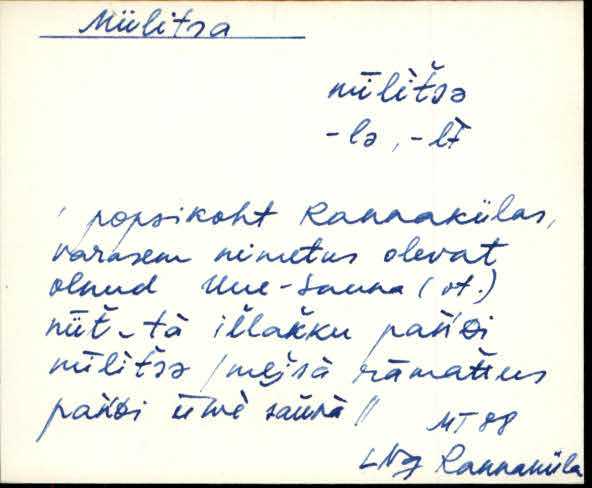 Müilitsa
mīlìt̆sə
-lə, -lt̄
/ popsikoht Rannakülas,
varasem nimetus olevat
olnud Uue-Sauna (vt.)
nüt‿tà ilĺakku pańdi
mīlit̆sə /mejsà rāmat̆us
pańdi ūwè sauna //
MT 88
LNg Rannaküla